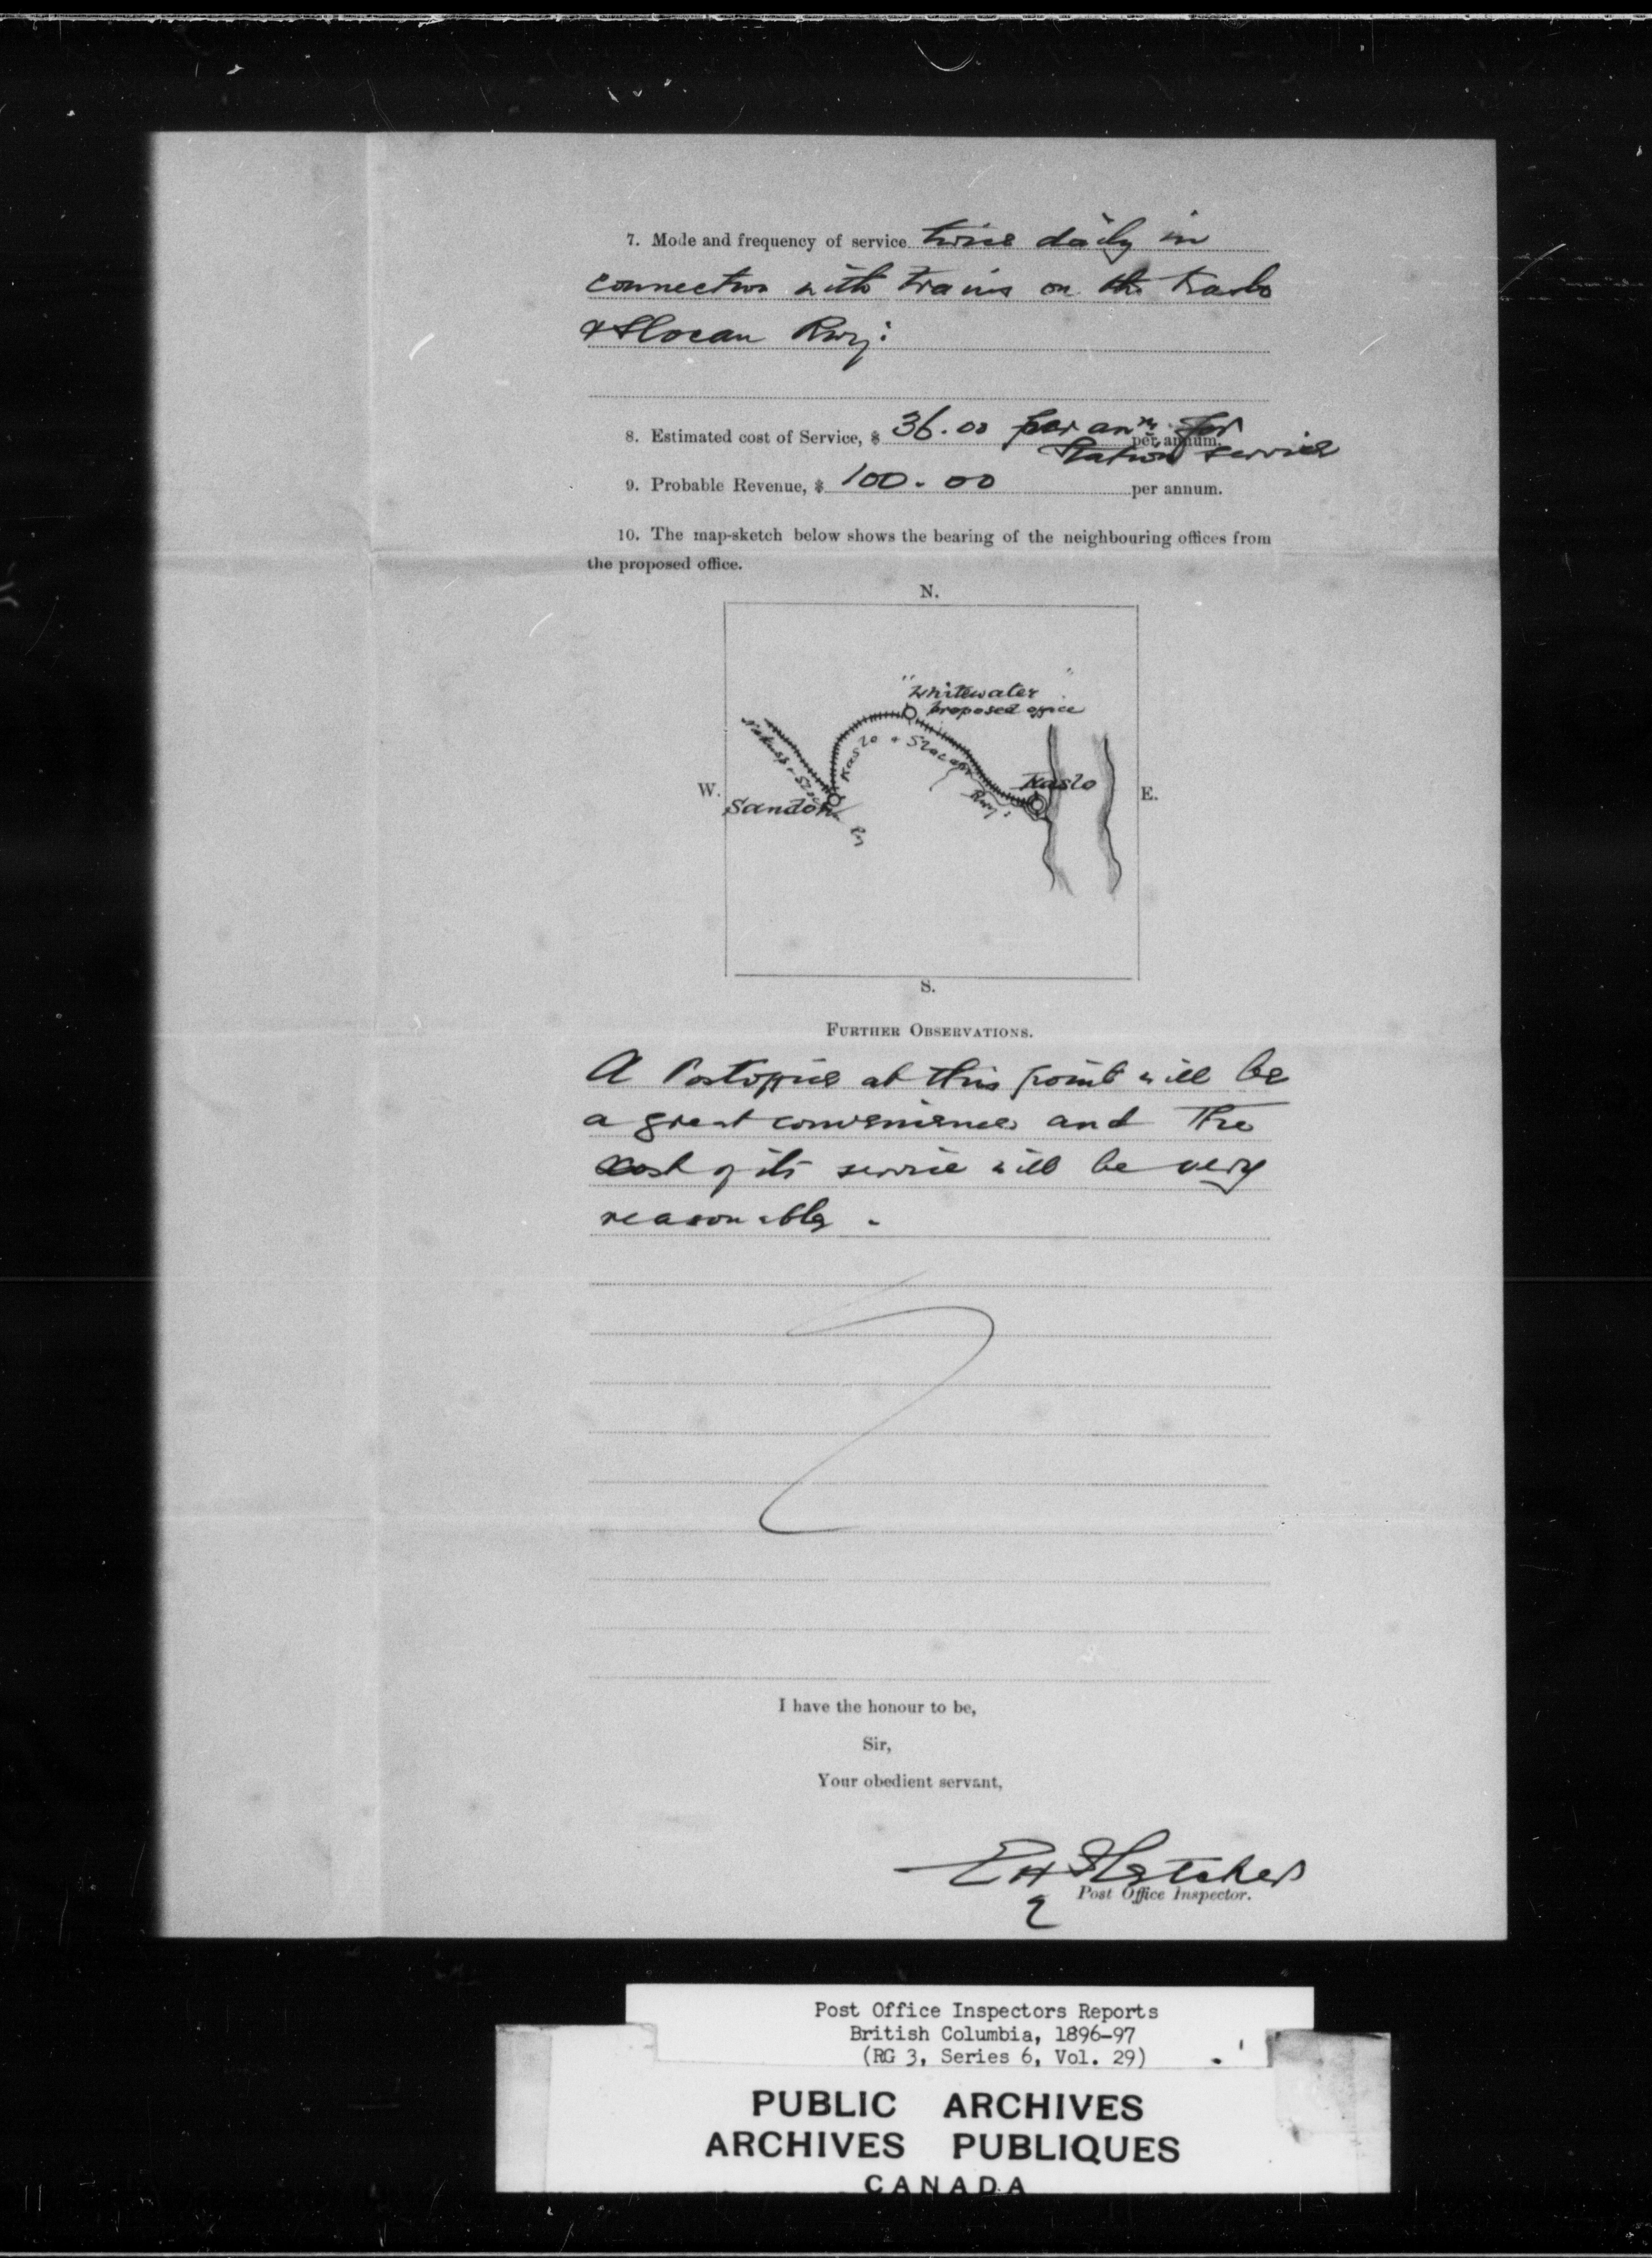 7. Mode and frequency of service twice daily in
connection with trains on the Kaslo
& Slocan Rwy:
8. Estimated cost of Service, $ 36.00 per anm. for
per annum.
Station service
9. Probable Revenue, $ 100.00 per annum.
10. The map-sketch below shows the bearing of the neighbouring offices from
the proposed office.
N.
"Whitewater"
proposed office
Nakusp & Slocan Ry
Kaslo & Slocan Rwy:
Kaslo
W.
E.
Sandon
S.
FURTHER OBSERVATIONS.
A Postoffice at this point will be
a great convenience and the
cost of its service will be very
reasonable.
I have the honour to be,
Sir,
Your obedient servant,
E H Fletcher
Post Office Inspector.
Post Office Inspectors Reports
British Columbia, 1896-97
(RG 3, Series 6, Vol. 29)
PUBLIC ARCHIVES
ARCHIVES PUBLIQUES
CANADA